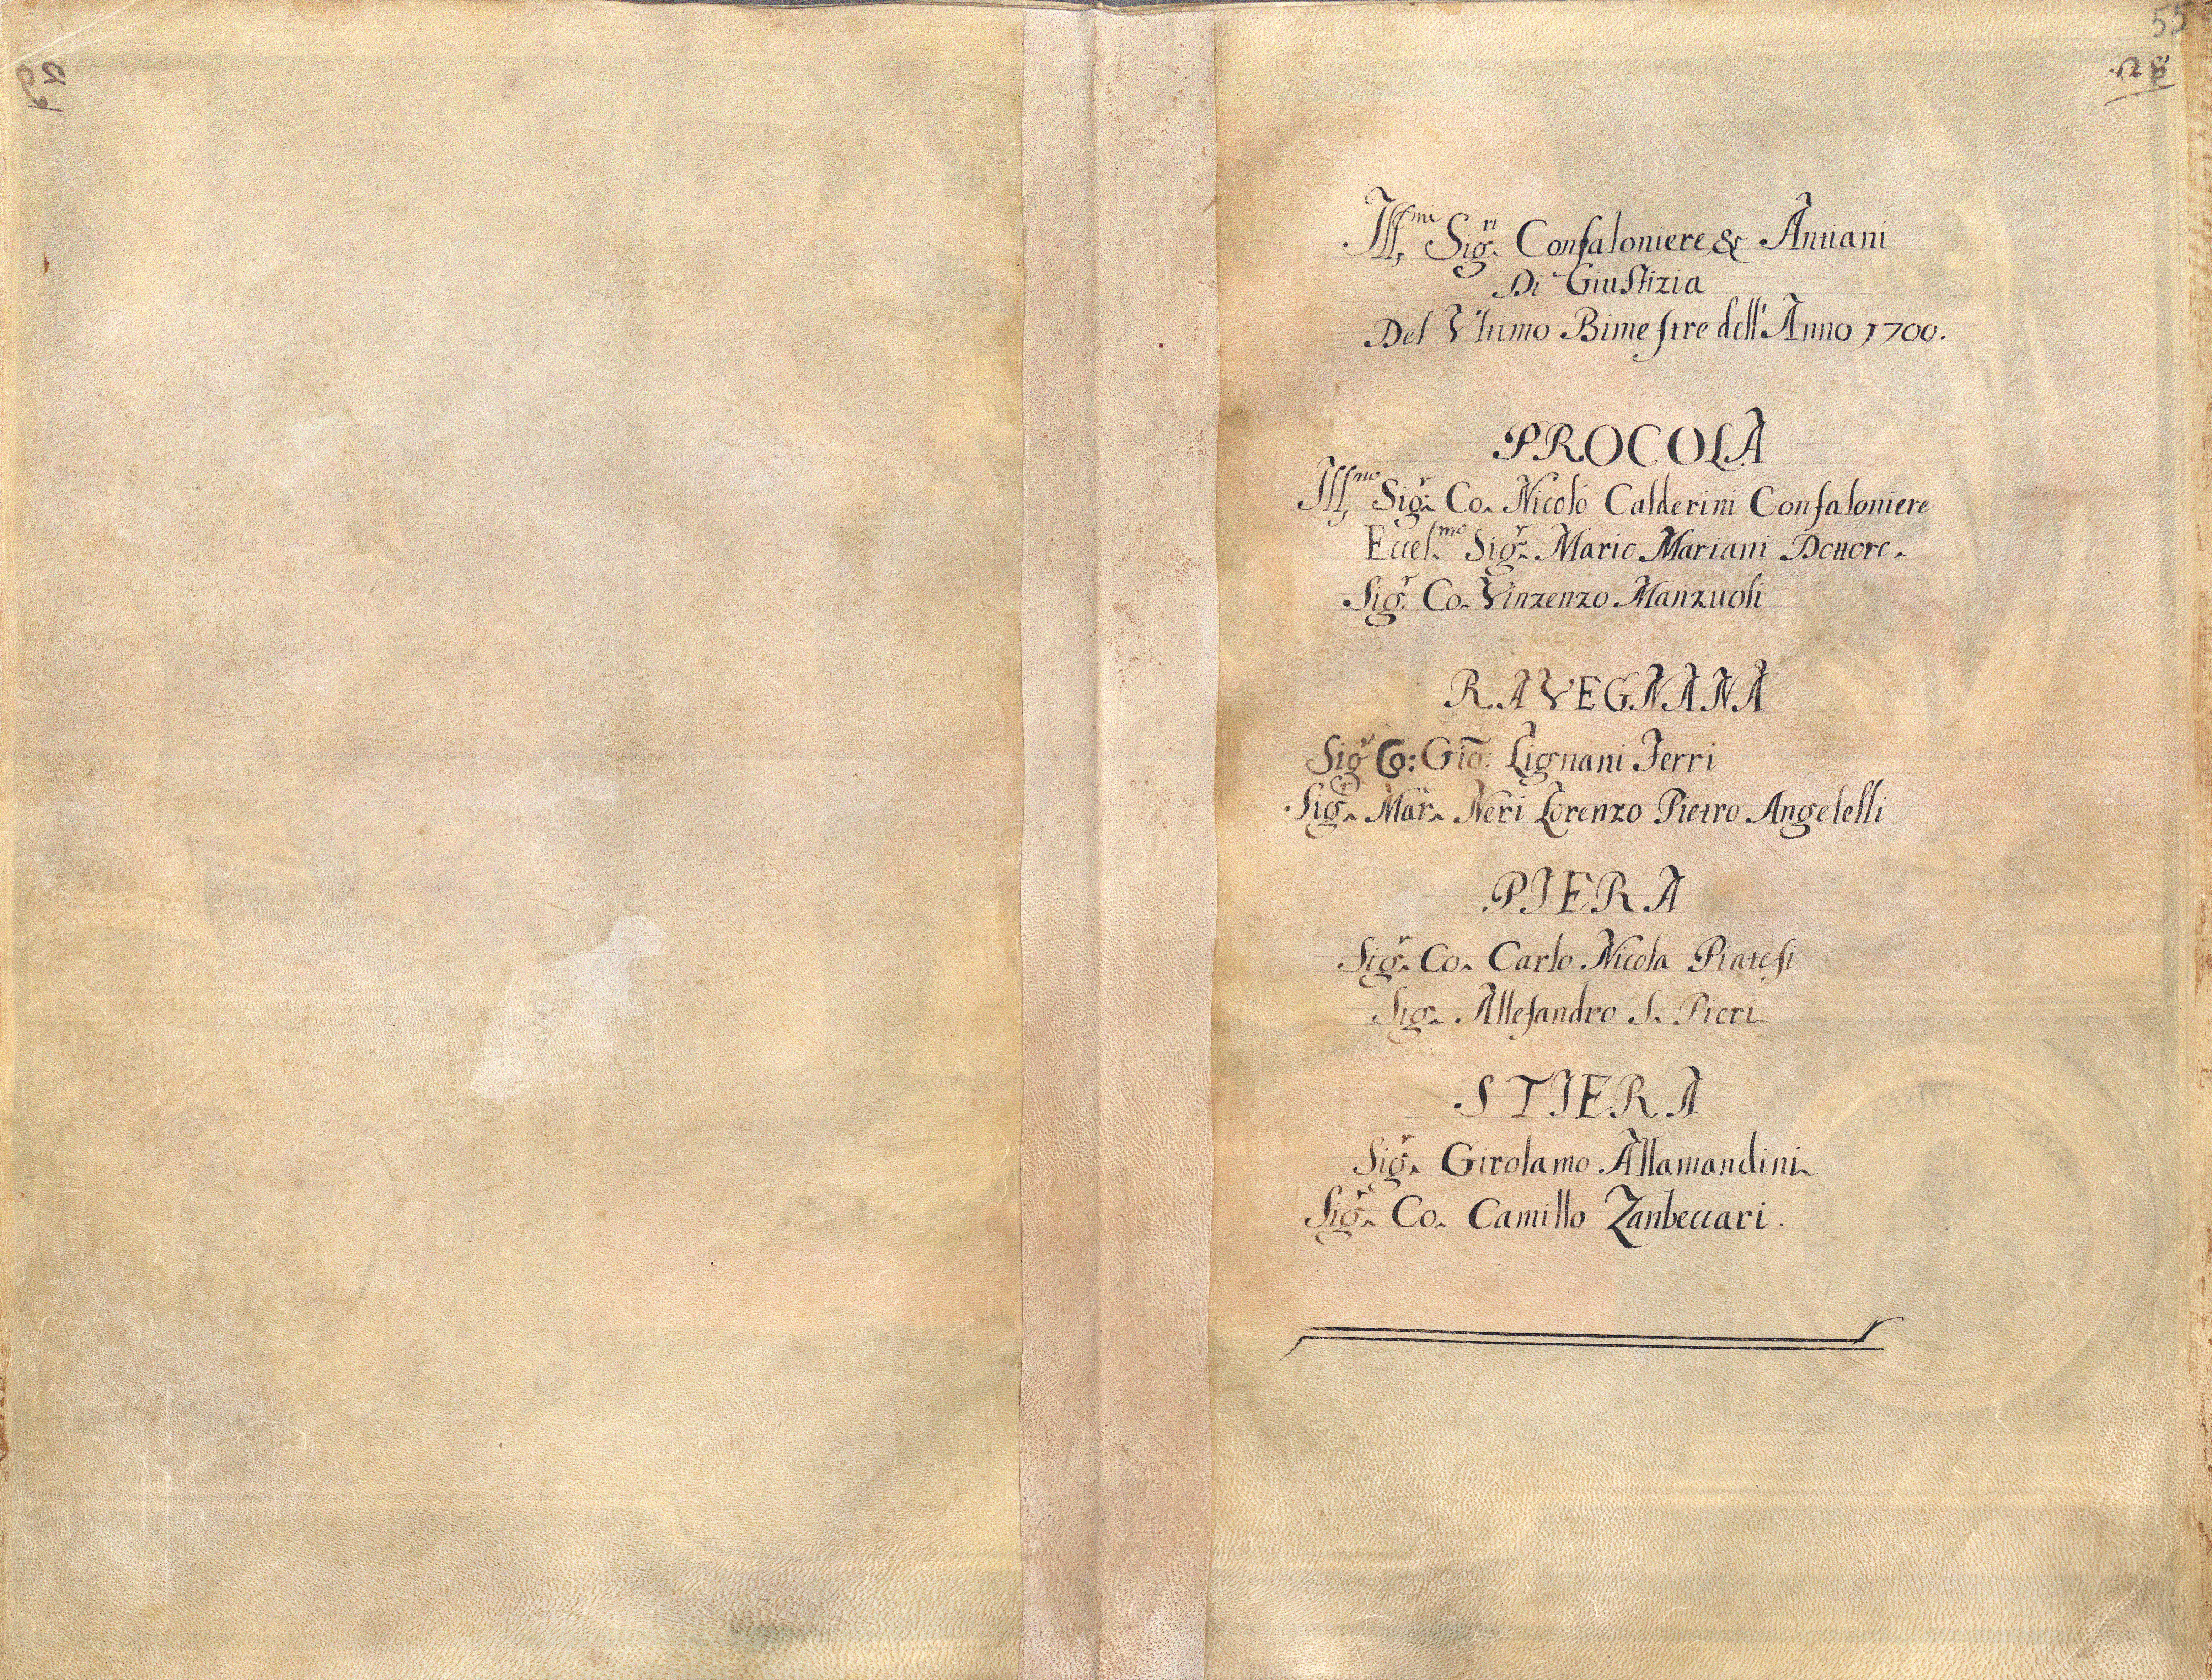 55
28
Ill.mi Sig.ri Confaloniere & Antiani
Di Giustizia
Del Vltimo Bimestre dell'Anno 1700.
PROCOLA
Ill.mo Sig.r Co. Nicolò Calderini Confaloniere
Eccel.mo Sig.r Mario Mariani Dottore.
Sig.r Co. Vinzenzo Manzuoli
RAVEGNANA
Sig.r Co: Gio: Lignani Ferri
Sig.r Mar. Neri Lorenzo Pietro Angelelli
PIERA
Sig.r Co. Carlo Nicola Piatesi
Sig. Allesandro S. Pieri
STIERA
Sig.r Girolamo Allamandini
Sig.r Co. Camillo Zanbeccari.